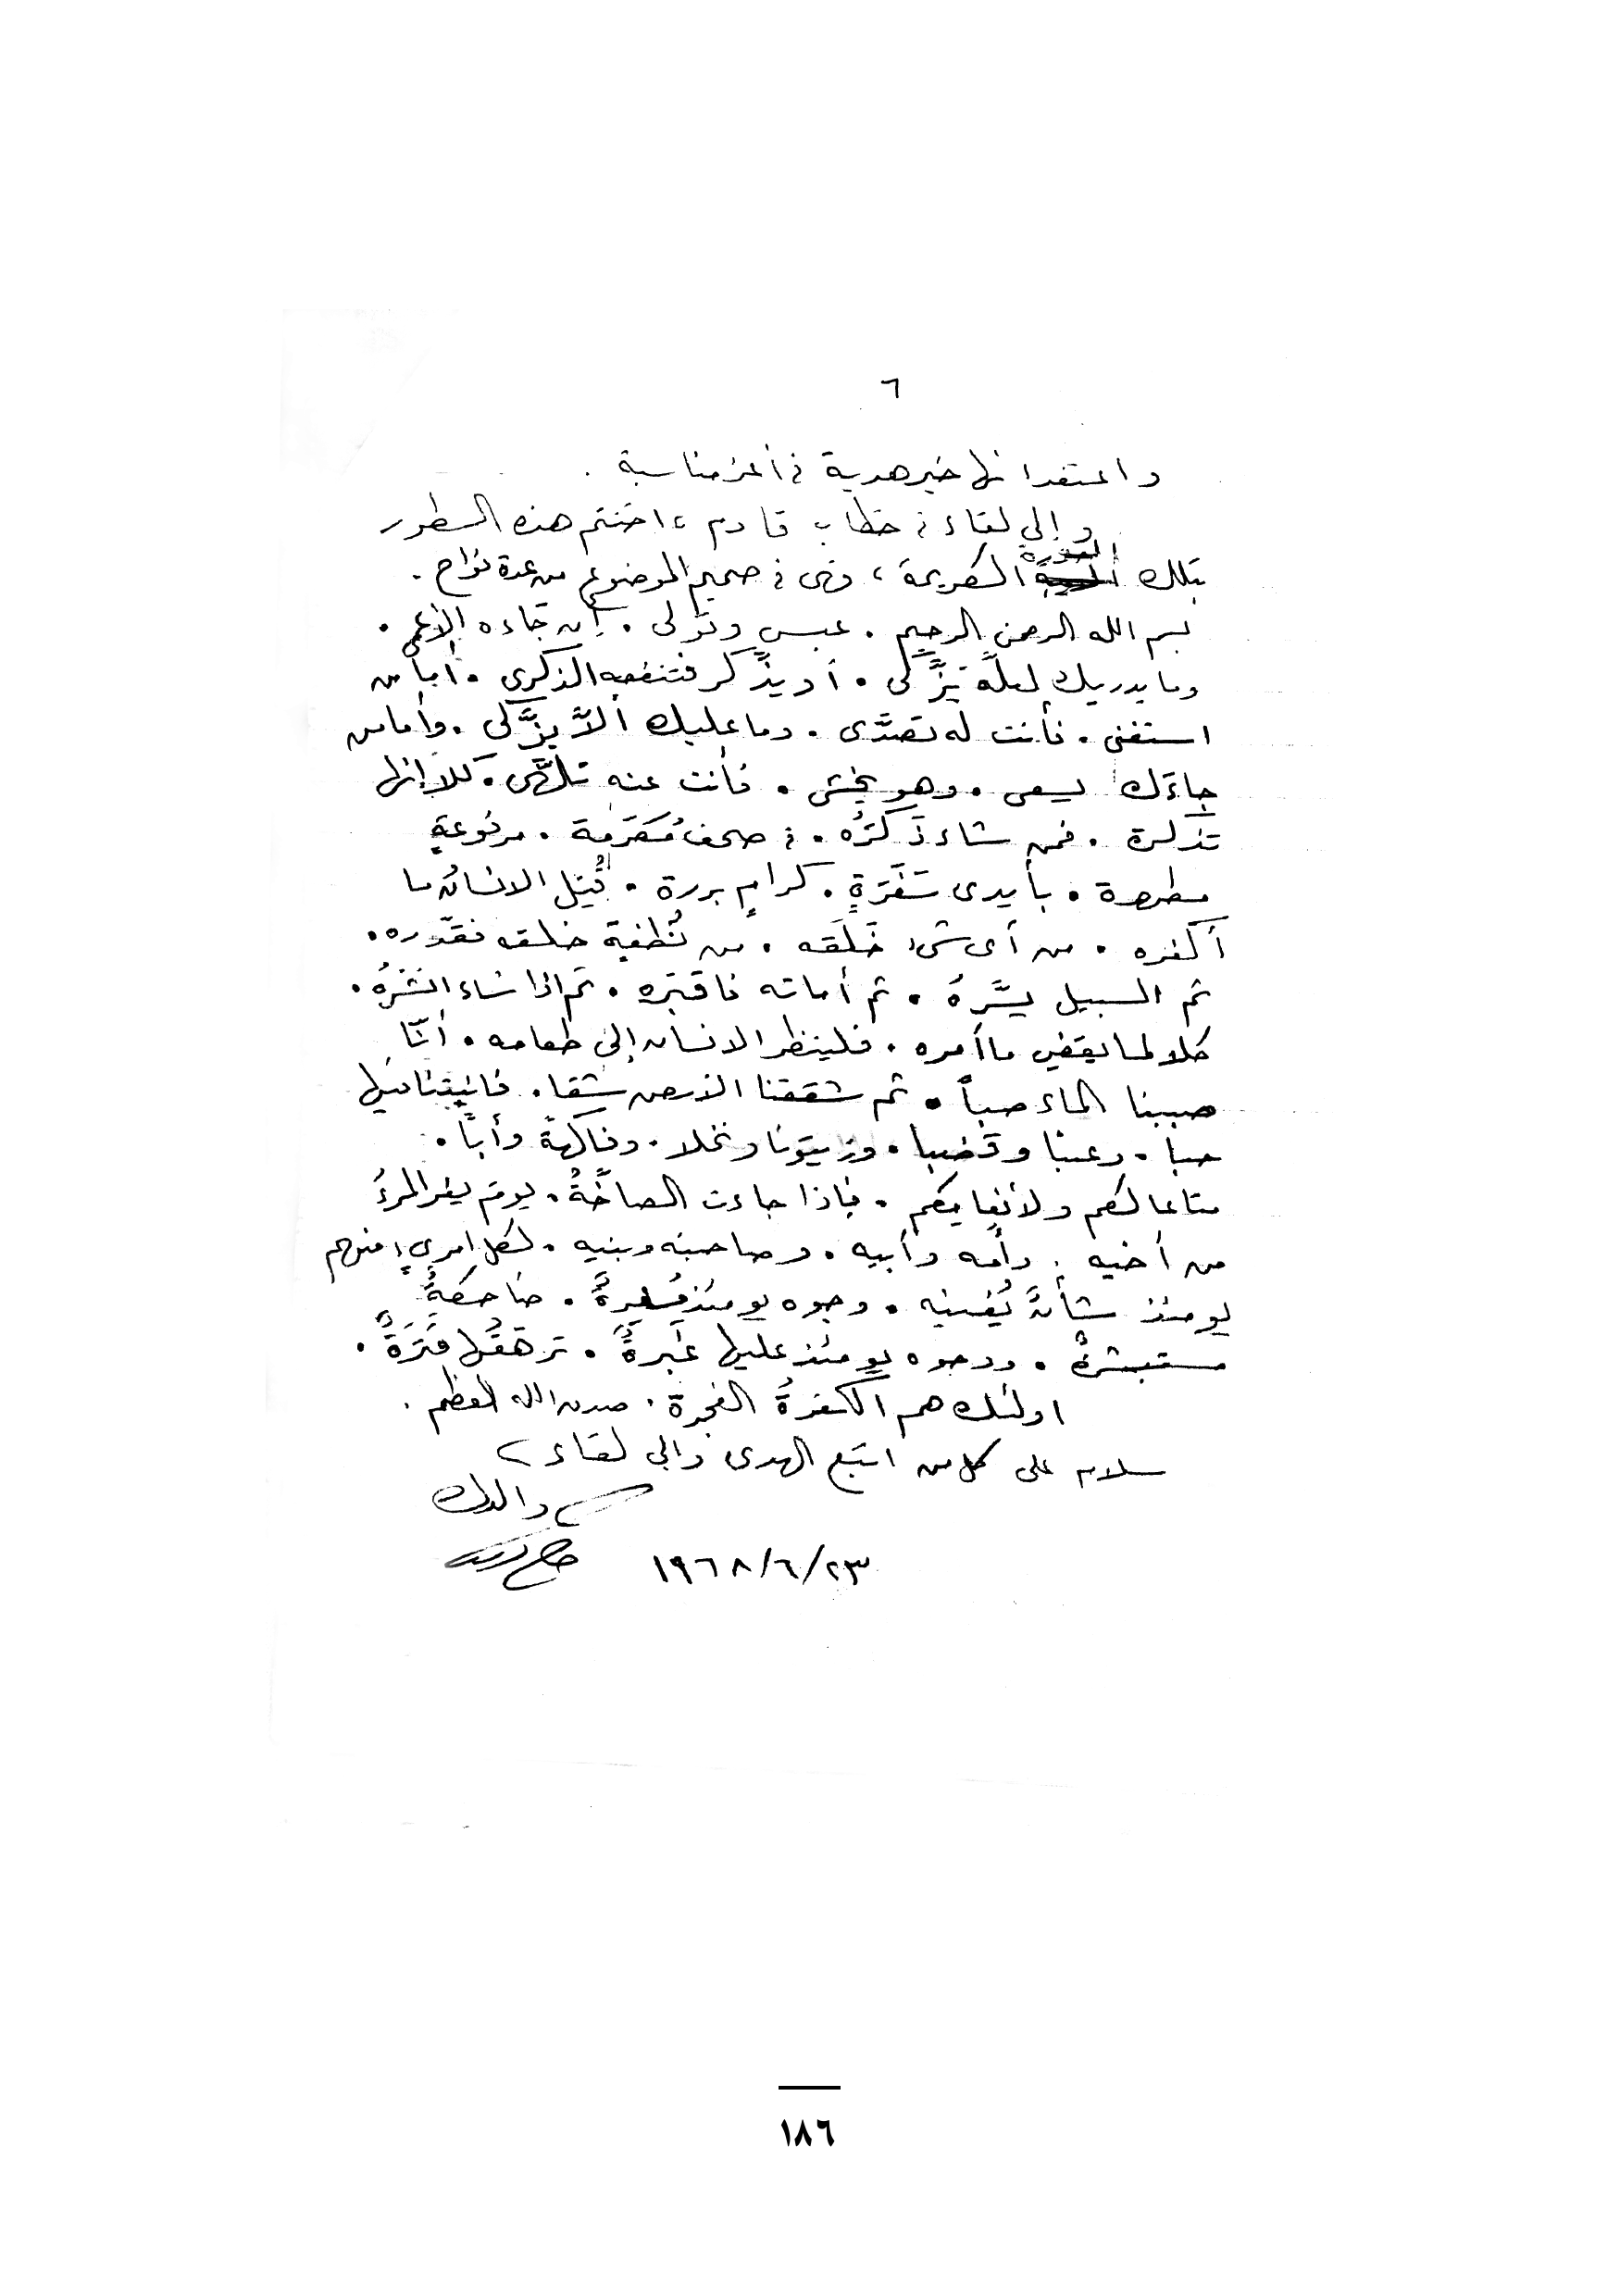 ٦
واعتقد انها خير هدية فى أعز مناسبة .
وإلى لقاء فى خطاب قادم ، اختتم هذه السطور
بتلك السورة الكريمة ، وهى فى صميم الموضوع من عدة نواح .
بسم الله الرحمن الرحيم . عبس وتولى . أن جاءه الأعمى .
وما يدريك لعلَّه يَزَّكَّى . أو يذَّكر فتنفعه الذكرى . أما من
استغنى . فأنت له تصَدَّى . وما عليك ألاَّ يزَّكى . وأما من
جاءك يسعى . وهو يخشى . فأنت عنه تلهَّى . كلا إنها
تذكرة . فمن شاء ذَكَرَهُ . فى صحف مُكَرمة . مرفوعةٍ
مطهرة . بأيدى سَفَرَةٍ . كرامٍ بررة . قُتِل الانسانُ ما
أكفره . من أى شىءٍ خَلَقَه . من نُطفةٍ خلقه فقدّره .
ثم السبيل يسَّرهُ . ثم أماته فاقبره . ثم اذا شاء انشرهُ .
كلا لما يقضِ ما أمره . فلينظر الانسان إلى طعامه . أنّا
صببنا الماء صباً . ثم شققنا الأرض شقا . فانبتنا فيها
حبا . وعنبا وقضبا . وزيتونا ونخلا . وفاكهةً وأبًّا .
متاعا لكم ولأنعامِكم . فإذا جاءت الصاخَّةُ . يوم يفر المرءُ
من أخيه . وأمه وأبيه . وصاحبته وبنيه . لكل امرىءٍ منهم
يومئذ شأنٌ يُغنيه . وجوه يومئذٍ مُسفِرةٌ . ضاحكةٌ
مستبشرةٌ . ووجوه يومئذ عليها غَبرةٌ . ترهقُها قَتَرَةٌ .
اولئك هم الكفرةُ الفجرة . صدق الله العظيم .
سلام على كل من اتبع الهدى وإلى لقاء ؟
والدك
١٩٦٨/٦/٢٣
١٨٦